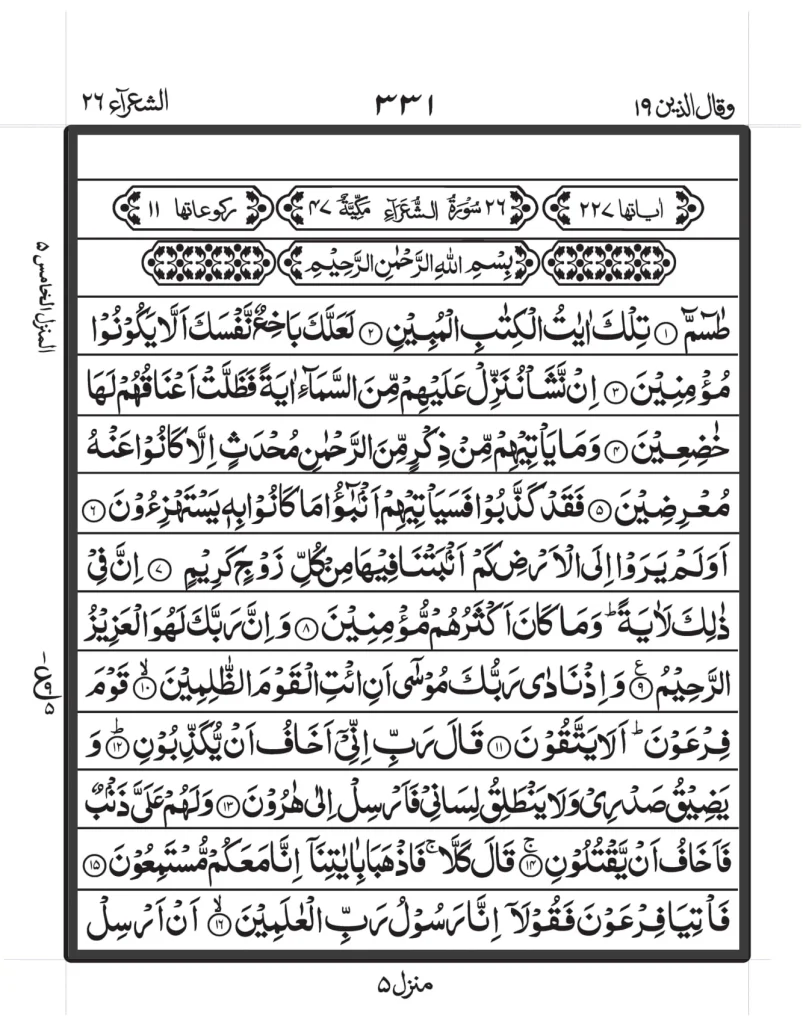 وقال الذين ١٩
٣٣١
الشعرآء ٢٦
اٰياتها ٢٢٧
٢٦ سُوْرَةُ الشُّعَرَآءِ مَكِّيَّةٌ ٤٧
ركوعاتها ١١
بِسْمِ اللهِ الرَّحْمٰنِ الرَّحِيْمِ
طٰسٓمّٓ ۝١ تِلْكَ اٰيٰتُ الْكِتٰبِ الْمُبِيْنِ ۝٢ لَعَلَّكَ بَاخِعٌ نَّفْسَكَ اَلَّا يَكُوْنُوْا
مُؤْمِنِيْنَ ۝٣ اِنْ نَّشَاْ نُنَزِّلْ عَلَيْهِمْ مِّنَ السَّمَآءِ اٰيَةً فَظَلَّتْ اَعْنَاقُهُمْ لَهَا
خٰضِعِيْنَ ۝٤ وَمَا يَاْتِيْهِمْ مِّنْ ذِكْرٍ مِّنَ الرَّحْمٰنِ مُحْدَثٍ اِلَّا كَانُوْا عَنْهُ
مُعْرِضِيْنَ ۝٥ فَقَدْ كَذَّبُوْا فَسَيَاْتِيْهِمْ اَنْۢبٰٓؤُا مَا كَانُوْا بِهٖ يَسْتَهْزِءُوْنَ ۝٦
اَوَلَمْ يَرَوْا اِلَى الْاَرْضِ كَمْ اَنْۢبَتْنَا فِيْهَا مِنْ كُلِّ زَوْجٍ كَرِيْمٍ ۝٧ اِنَّ فِيْ
ذٰلِكَ لَاٰيَةً ؕ وَمَا كَانَ اَكْثَرُهُمْ مُّؤْمِنِيْنَ ۝٨ وَاِنَّ رَبَّكَ لَهُوَ الْعَزِيْزُ
الرَّحِيْمُ ۝٩ وَاِذْ نَادٰى رَبُّكَ مُوْسٰٓى اَنِ ائْتِ الْقَوْمَ الظّٰلِمِيْنَ ۝١٠ۙ قَوْمَ
فِرْعَوْنَ ؕ اَلَا يَتَّقُوْنَ ۝١١ قَالَ رَبِّ اِنِّيْٓ اَخَافُ اَنْ يُّكَذِّبُوْنِ ۝١٢ؕ وَ
يَضِيْقُ صَدْرِيْ وَلَا يَنْطَلِقُ لِسَانِيْ فَاَرْسِلْ اِلٰى هٰرُوْنَ ۝١٣ وَلَهُمْ عَلَيَّ ذَنْۢبٌ
فَاَخَافُ اَنْ يَّقْتُلُوْنِ ۝١٤ۚ قَالَ كَلَّا ۚ فَاذْهَبَا بِاٰيٰتِنَآ اِنَّا مَعَكُمْ مُّسْتَمِعُوْنَ ۝١٥
فَاْتِيَا فِرْعَوْنَ فَقُوْلَآ اِنَّا رَسُوْلُ رَبِّ الْعٰلَمِيْنَ ۝١٦ۙ اَنْ اَرْسِلْ
المنزل الخامس ٥
منزل ٥